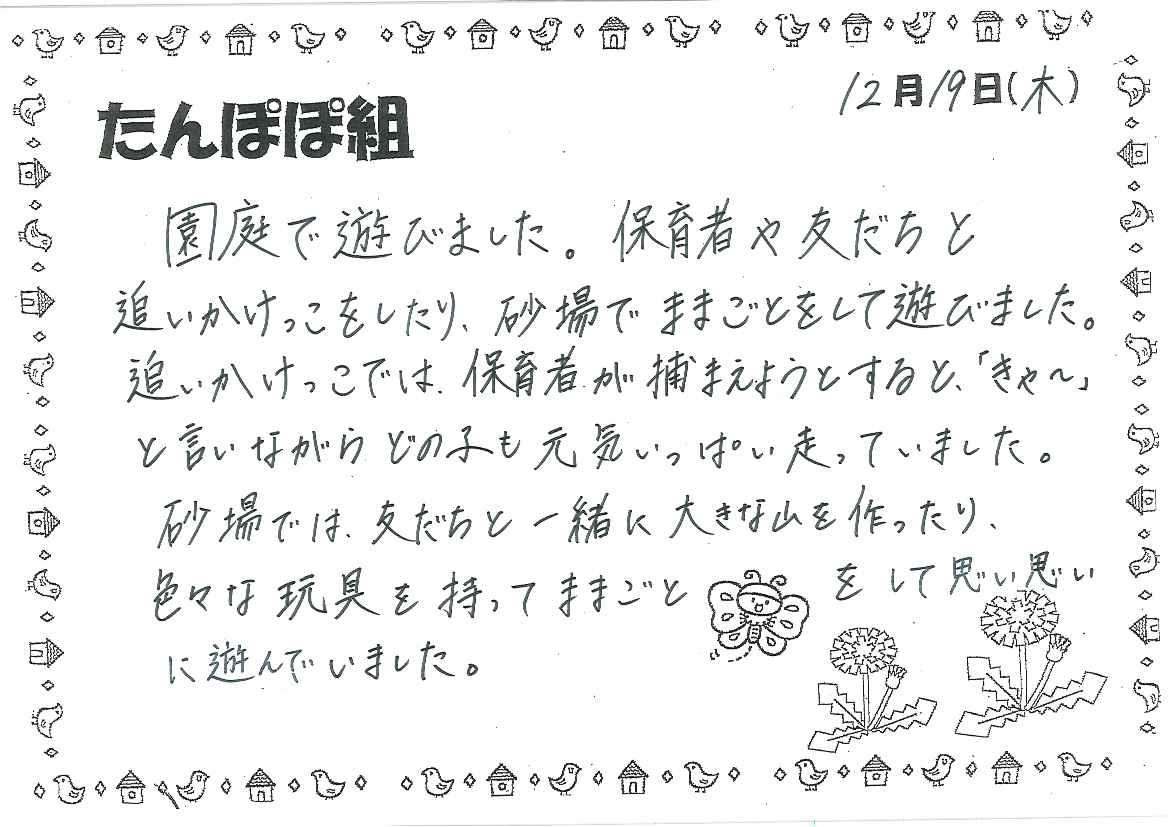 12月19日(木)
たんぽぽ組
園庭で遊びました。保育者や友だちと
追いかけっこをしたり、砂場でままごとをして遊びました。
追いかけっこでは、保育者が捕まえようとすると、「きゃ〜」
と言いながらどの子も元気いっぱい走っていました。
砂場では、友だちと一緒に大きな山を作ったり、
色々な玩具を持ってままごとをして思い思い
に遊んでいました。